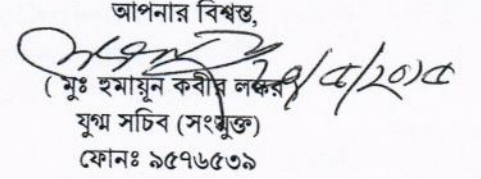 আপনার বিশ্বস্ত,
( মুঃ হুমায়ূন কবীর লস্কর)
যুগ্ম সচিব (সংযুক্ত)
ফোনঃ ৯৫৭৬৫৩৯